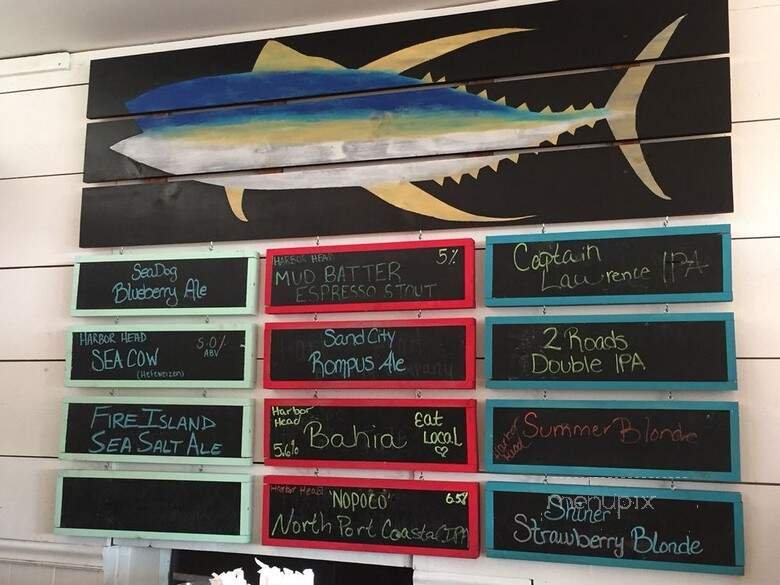 SeaDog
Blueberry Ale
HARBOR HEAD
SEA COW 5.0%
ABV
(Hefeweizen)
FIRE ISLAND
SEA SALT ALE
HARBOR HEAD 5%
MUD BATTER
ESPRESSO STOUT
Sand City
Rompus Ale
Harbor
Head
5.6%
Bahia
Eat
Local
Harbor Head
"NOPOCO" 6.5%
North Port Coastal IPA
Captain
Lawrence IPA
2 Roads
Double IPA
Harbor
Head
Summer Blonde
menupix
Shiner
Strawberry Blonde